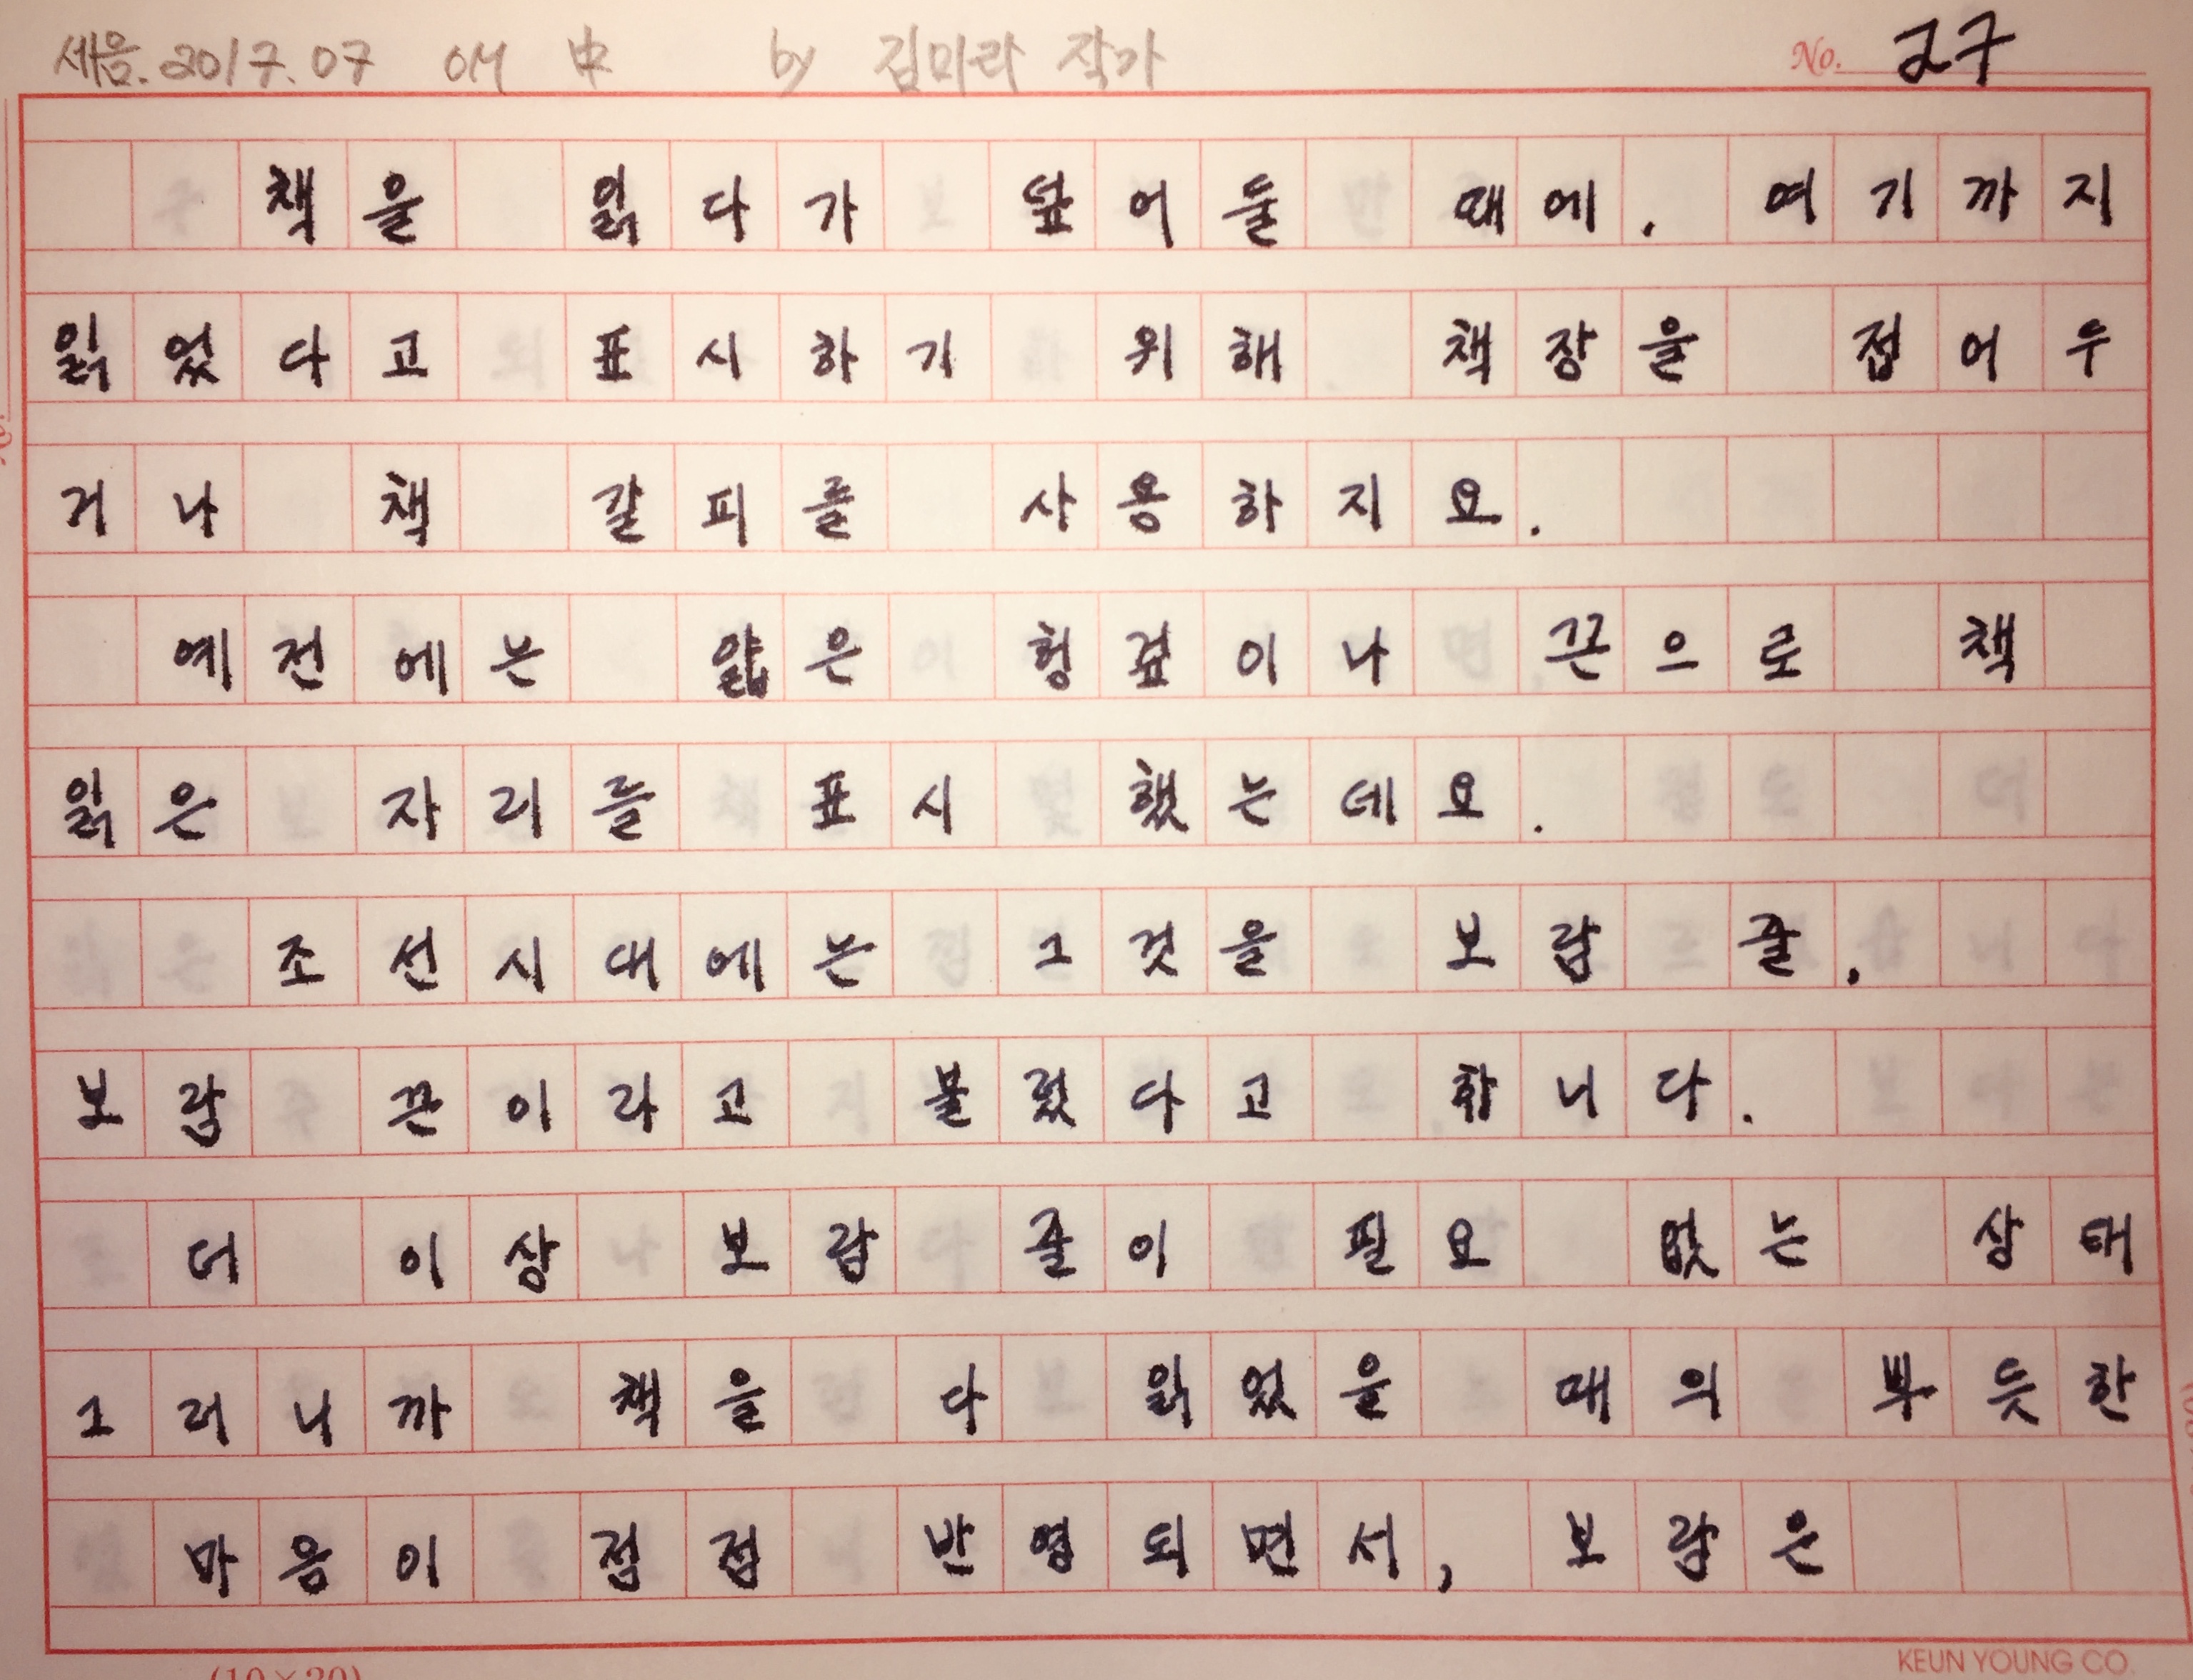 세음. 2017. 07 에 中 by 김미라 작가 No. 27
책을 읽다가 덮어둘 때에. 여기까지
읽었다고 표시하기 위해 책장을 접어두
거나 책 갈피를 사용하지요.
예전에는 얇은 헝겊이나 끈으로 책
읽은 자리를 표시 했는데요.
조선시대에는 그것을 보람 줄.
보람 끈이라고 불렀다고 합니다.
더 이상 보람 줄이 필요 없는 상태
그러니까 책을 다 읽었을 때의 뿌듯한
마음이 점점 반영되면서, 보람은
KEUN YOUNG CO.
(10×20)